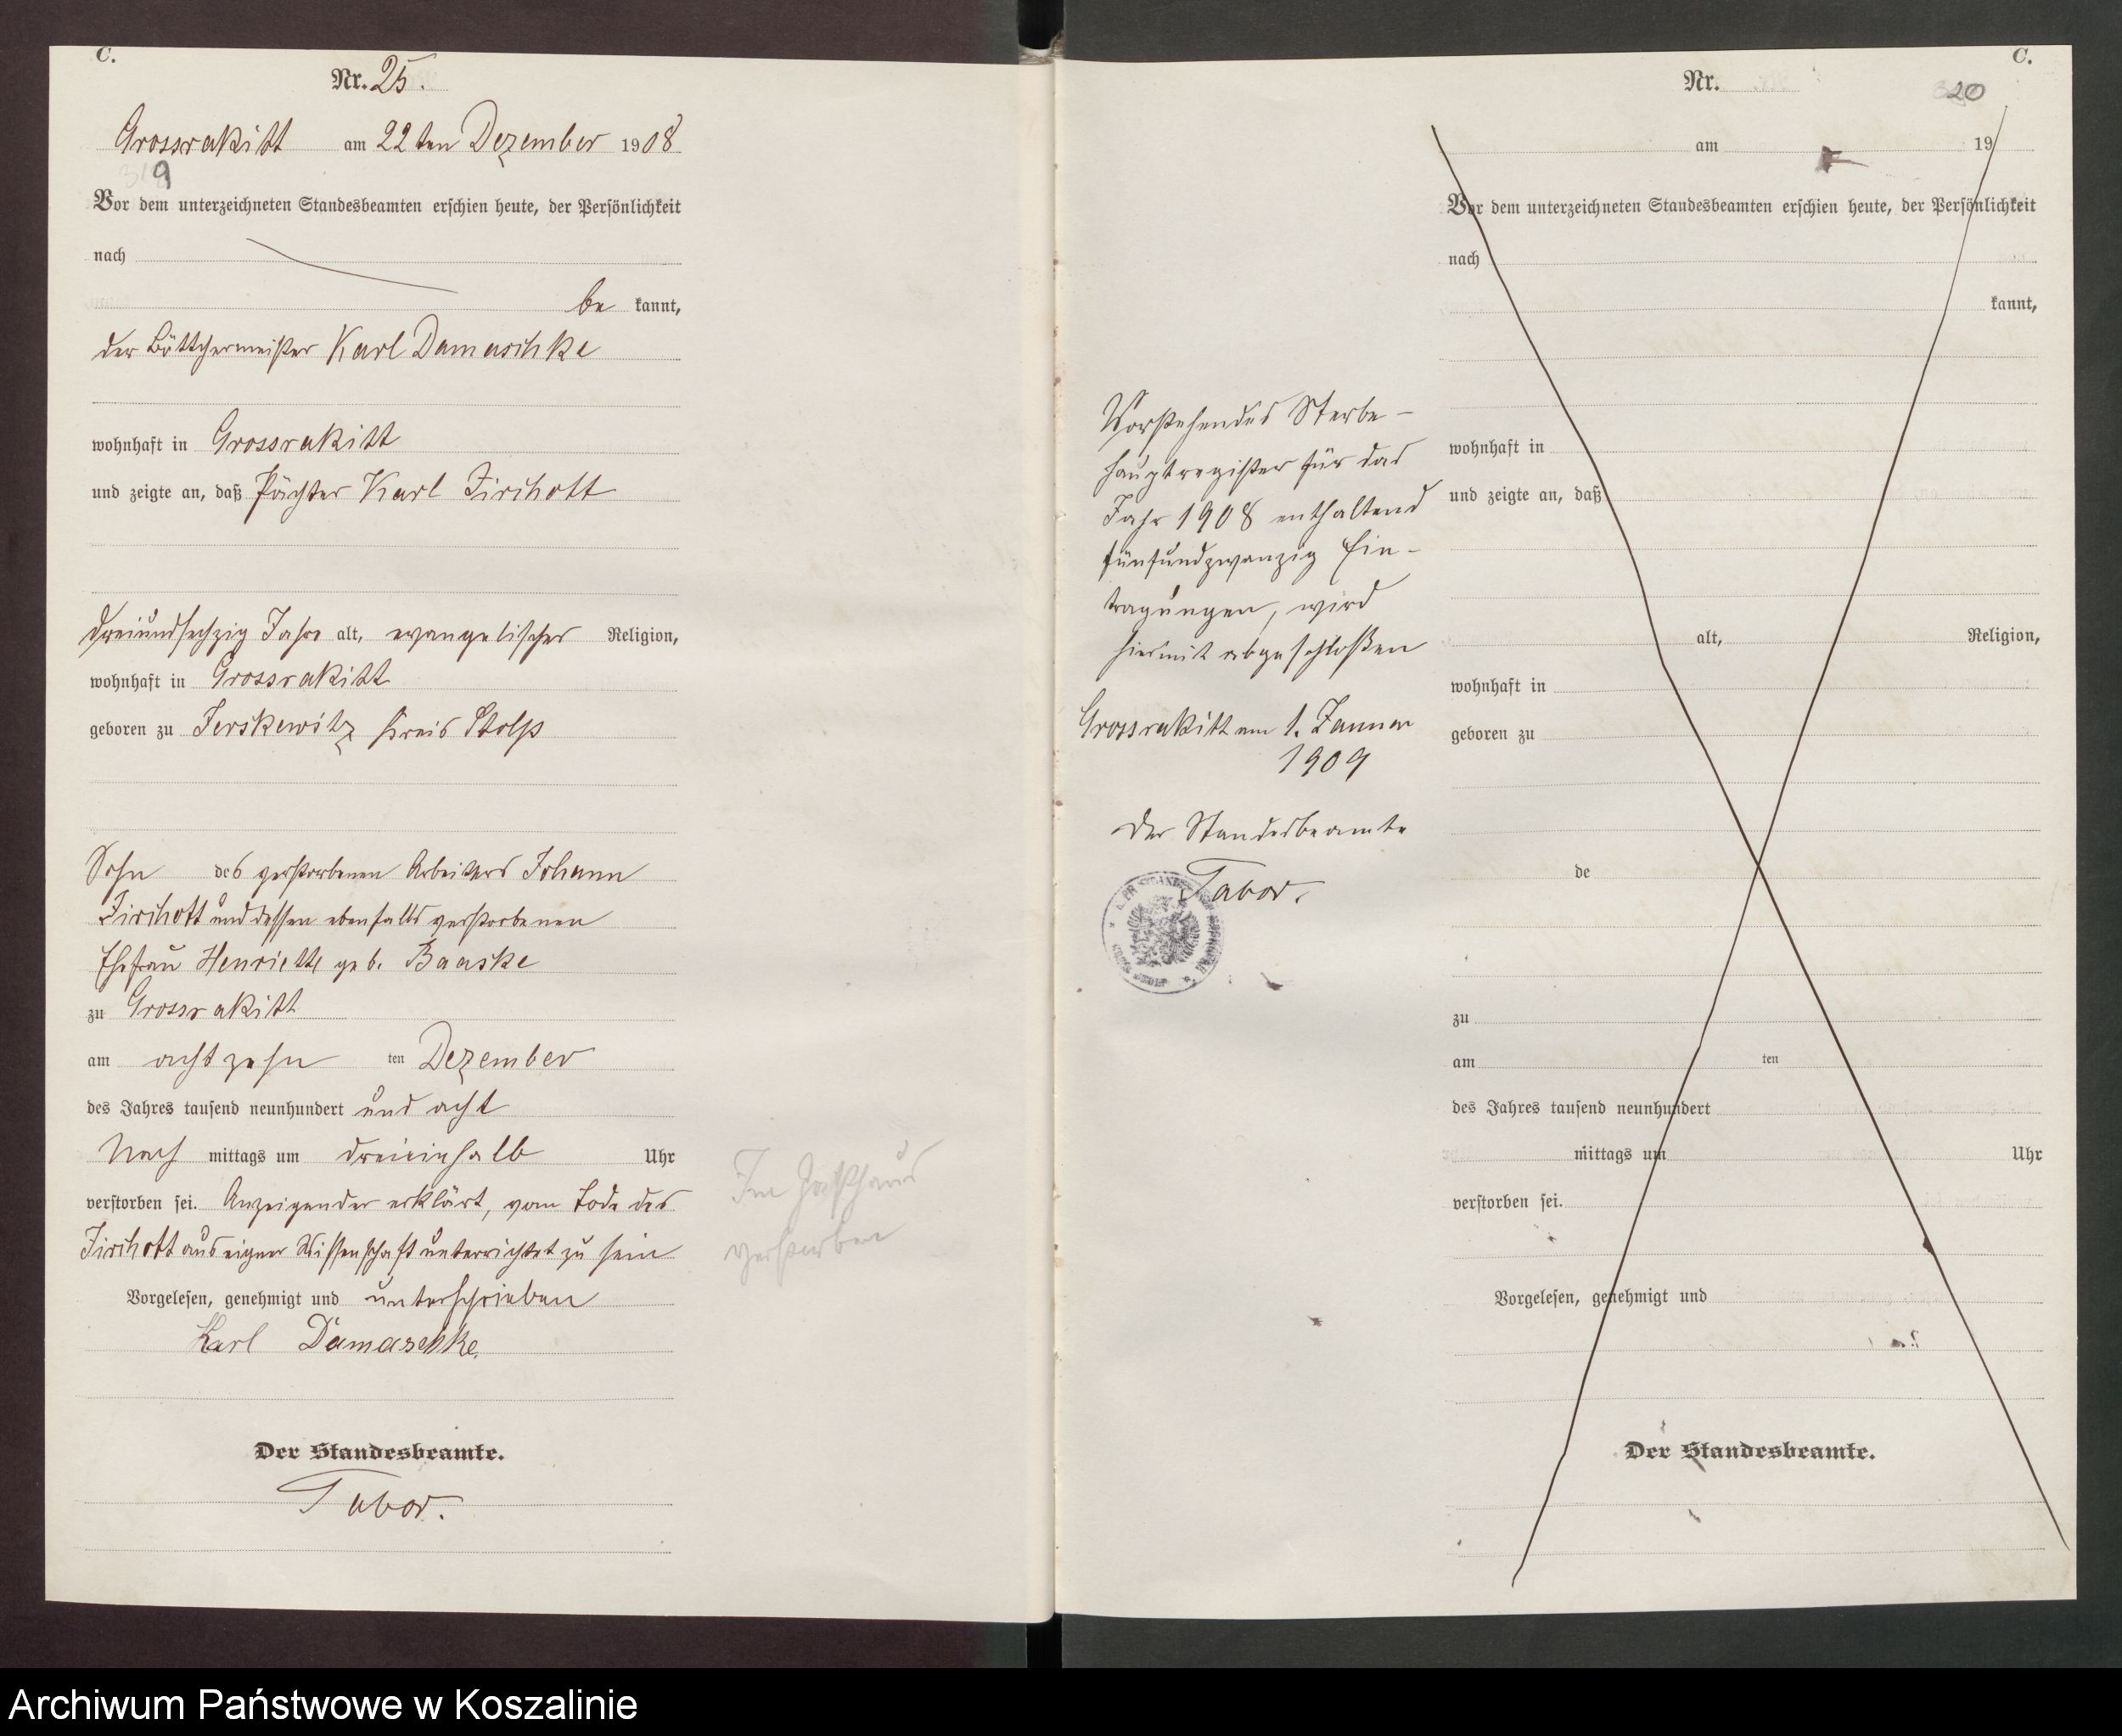 C.
Nr. 25.
Grossrakitt am 22ten Dezember 1908
9
Vor dem unterzeichneten Standesbeamten erschien heute, der Persönlichkeit
nach
be kannt,
der Böttchermeister Karl Damaschke
wohnhaft in Grossrakitt
und zeigte an, daß Pächter Karl Zirchott
dreiundsechzig Jahre alt, evangelischer Religion,
wohnhaft in Grossrakitt
geboren zu Jerskewitz Kreis Stolp
Sohn des verstorbenen Arbeiters Johann
Zirchott und dessen ebenfalls verstorbenen
Ehefrau Henriette geb. Baaske
zu Grossrakitt
am achtzehn ten Dezember
des Jahres tausend neunhundert und acht
Nach mittags um dreieinhalb Uhr
verstorben sei. Anzeigender erklärt, vom Tode des
Zirchott aus eigner Wissenschaft unterrichtet zu sein
Vorgelesen, genehmigt und unterschrieben
Karl Damaschke.
Der Standesbeamte.
Tabor.
Im Gasthaus
verstorben
C.
Nr.
20
am 19
Vor dem unterzeichneten Standesbeamten erschien heute, der Persönlichkeit
nach
kannt,
wohnhaft in
und zeigte an, daß
alt, Religion,
wohnhaft in
geboren zu
de
zu
am ten
des Jahres tausend neunhundert
mittags um Uhr
verstorben sei.
Vorgelesen, genehmigt und
Der Standesbeamte.
Vorstehendes Sterbe-
hauptregister für das
Jahr 1908 enthaltend
fünfundzwanzig Ein-
tragungen, wird
hiermit abgeschloßen
Grossrakitt am 1. Januar
1909
Der Standesbeamte
Tabor.
Archiwum Państwowe w Koszalinie